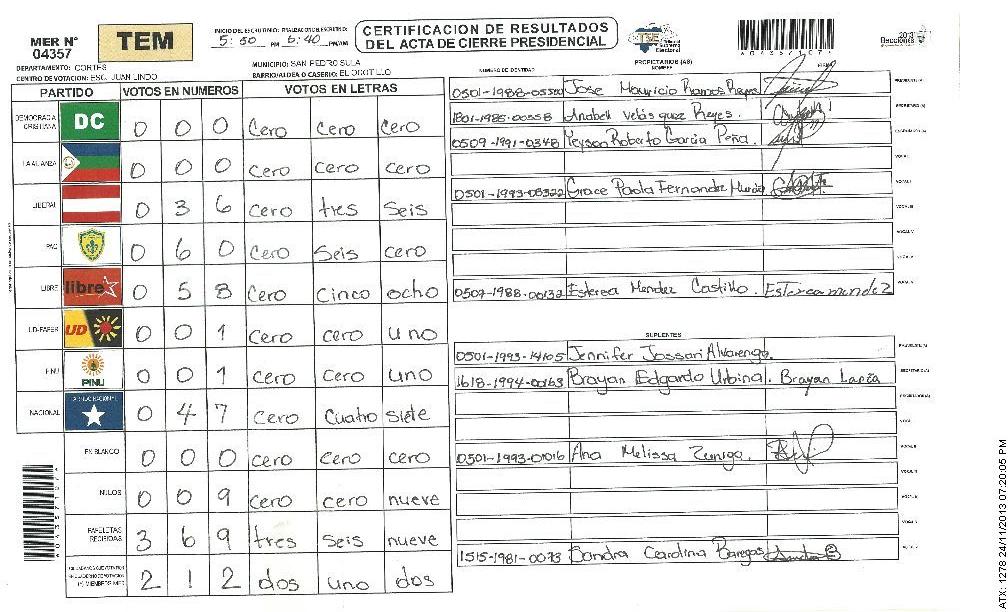 MER N° 04357
TEM
INICIO DEL ESCRUTINIO: FINALIZACION DE ESCRUTINIO:
5:50 PM 6:40 PM/AM
CERTIFICACION DE RESULTADOS
DEL ACTA DE CIERRE PRESIDENCIAL
TSE Tribunal Supremo Electoral
2013 Elecciones
DEPARTAMENTO: CORTES
MUNICIPIO: SAN PEDRO SULA
CENTRO DE VOTACION: ESC. JUAN LINDO
BARRIO/ALDEA O CASERIO: EL OCOTILLO
PARTIDO VOTOS EN NUMEROS VOTOS EN LETRAS
DEMOCRACIA CRISTIANA DC 0 0 0 Cero Cero Cero
LA ALIANZA 0 0 0 Cero cero cero
LIBERAL 0 3 6 Cero tres Seis
PAC 0 6 0 Cero Seis cero
LIBRE libre 0 5 8 Cero Cinco ocho
UD-FAPER UD 0 0 1 Cero cero uno
PINU PINU 0 0 1 Cero Cero uno
NACIONAL 0 4 7 Cero Cuatro siete
EN BLANCO 0 0 0 Cero Cero Cero
NULOS 0 0 9 Cero cero nueve
PAPELETAS RECIBIDAS 3 6 9 tres seis nueve
2 1 2 dos uno dos
NUMERO DE IDENTIDAD PROPIETARIOS (AS) NOMBRE FIRMA
Jose Mauricio Ramos Reyes PRESIDENTE (A)
1801-1985-00558 Anabell Velásquez Reyes. SECRETARIO (A)
0509-1991-0348 Yeyson Roberto Garcia Peña. ESCRUTADOR (A)
VOCAL I
Grace Paola Fernandez VOCAL II
VOCAL III
VOCAL IV
VOCAL V
0507-1988-00132 Esterea Mendez Castillo. Esterea mendez
SUPLENTES
0501-1993-14105 Jennifer Jossari Alvarenga. PRESIDENTE (A)
1618-1994-00163 Brayan Edgardo Urbina. Brayan SECRETARIO (A)
ESCRUTADOR (A)
VOCAL I
0501-1993-01016 Ana Melissa Zuniga. VOCAL II
VOCAL III
VOCAL IV
VOCAL V
1515-1981-0073 Sandra Carolina
ATX: 1278 24/11/2013 07:20:05 PM